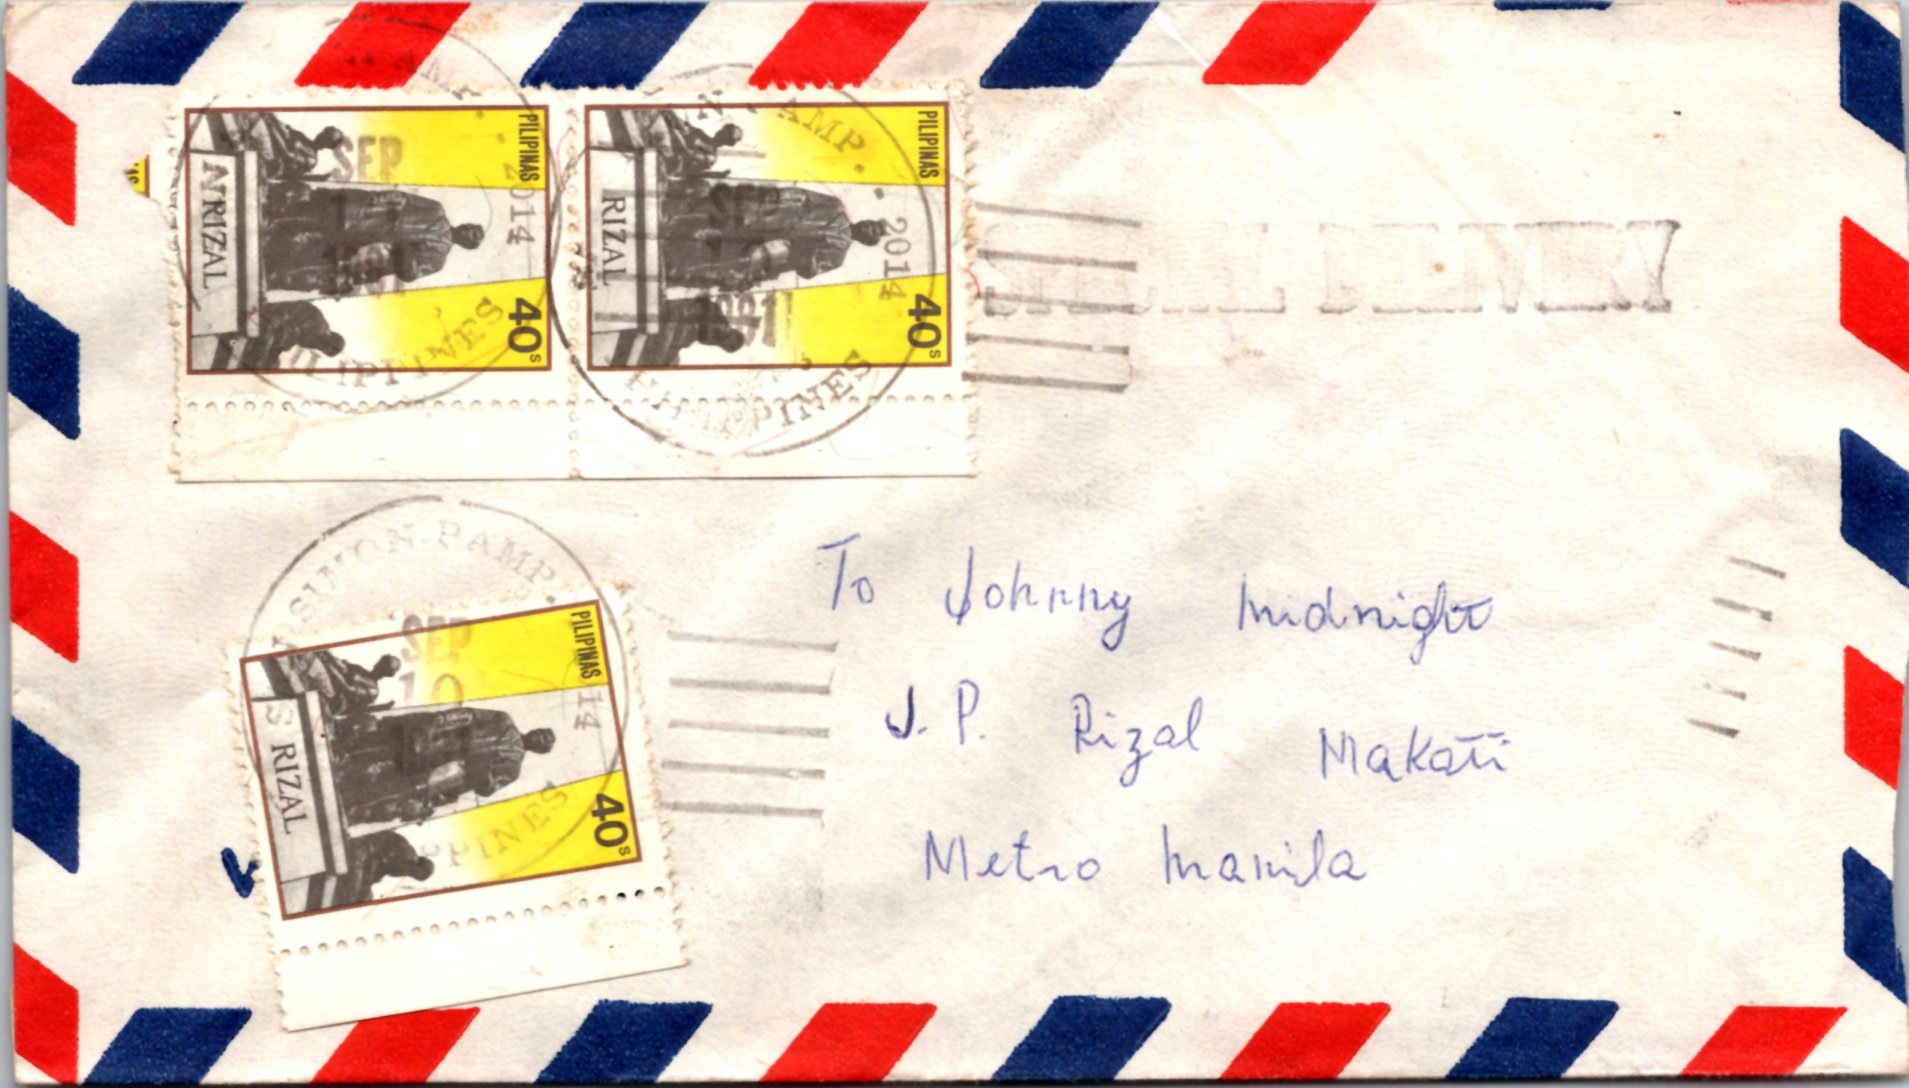 PILIPINAS
RIZAL
40s
SEP
2014
PILIPINAS
RIZAL
40s
PAMP.
2014
PHILIPPINES
SPECIAL DELIVERY
SIMON.PAMP.
SEP
10
14
PILIPINAS
RIZAL
40s
To Johnny Midnight
J.P. Rizal Makati
Metro Manila